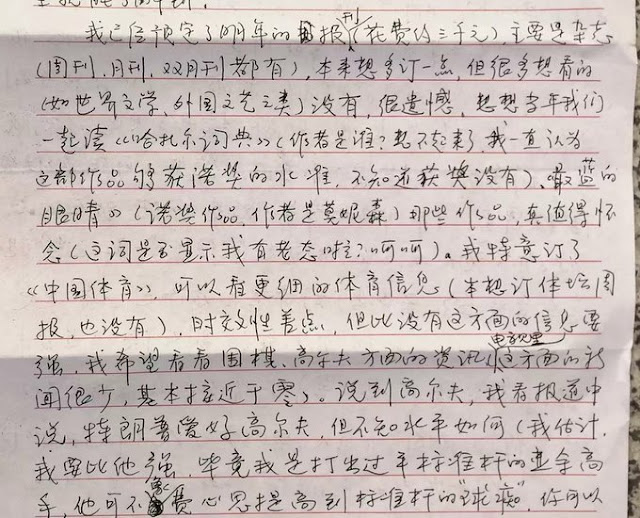 我已经预定了明年的报刊(花费约三千元),主要是杂志
(周刊,月刊,双月刊都有),本来想多订一点,但很多想看的
(如世界文学,外国文艺之类)没有,很遗憾,想想当年我们
一起读《哈扎尔词典》(作者是谁?想不起来了,我一直认为
这部作品够获诺奖的水准,不知道获奖没有)、最蓝的
眼睛》(诺奖作品,作者是莫妮森)那些作品,真值得怀
念(这词是否显示我有老态啦?呵呵)。我特意订了
《中国体育》,可以看更细的体育信息(本想订体坛周
报,也没有),时效性差点,但比没有这方面的信息要
强,我希望看看围棋、高尔夫方面的资讯(电视里这方面的新
闻很少,基本接近于零)。说到高尔夫,我看报道中
说,特朗普爱好高尔夫,但不知水平如何(我估计,
我要比他强,毕竟我是打出过平标准杆的业余高
手,他可不像我费心思提高到标准杆的"球痴",你可以